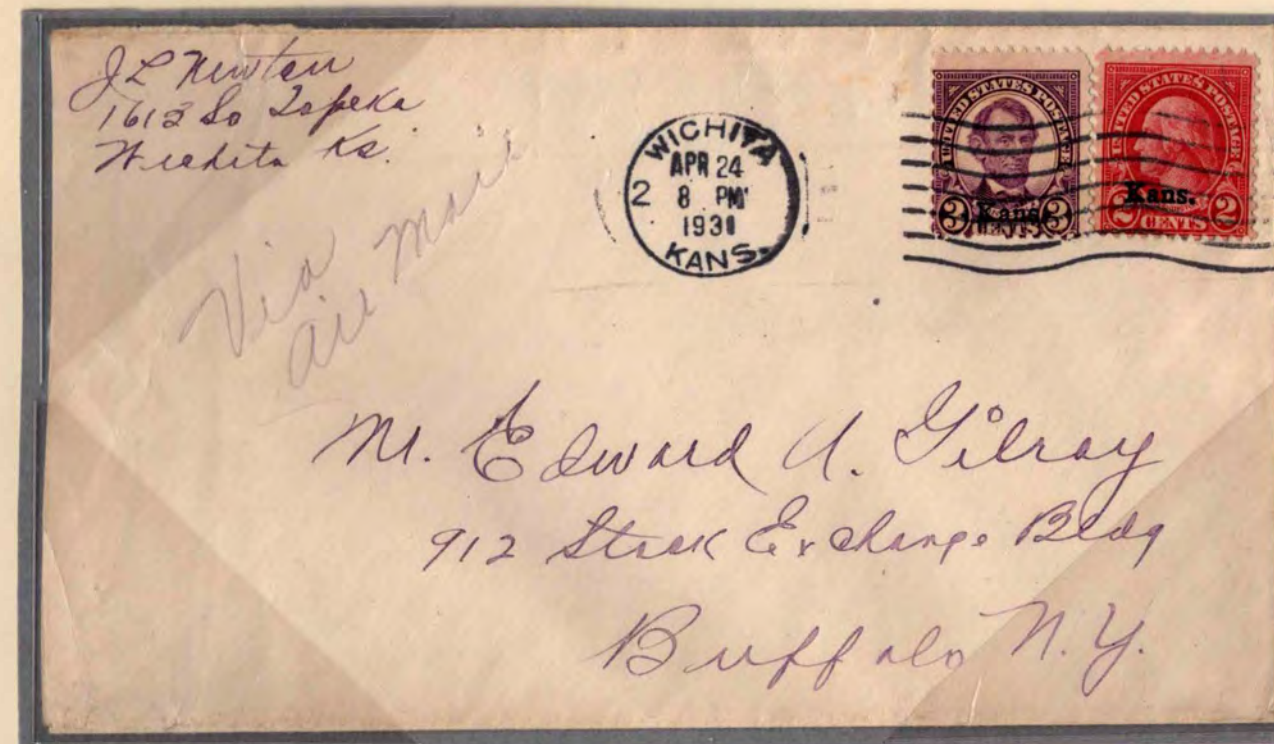 J L Newton
1613 So Topeka
Wichita Ks.
Via
Air Mail
WICHITA
APR 24
2 8 PM
1931
KANS.
UNITED STATES POSTAGE
3 Kans. 3
CENTS
UNITED STATES POSTAGE
Kans.
2 CENTS 2
Mr. Edward A. Gilray
912 Stock Exchange Bldg
Buffalo N.Y.